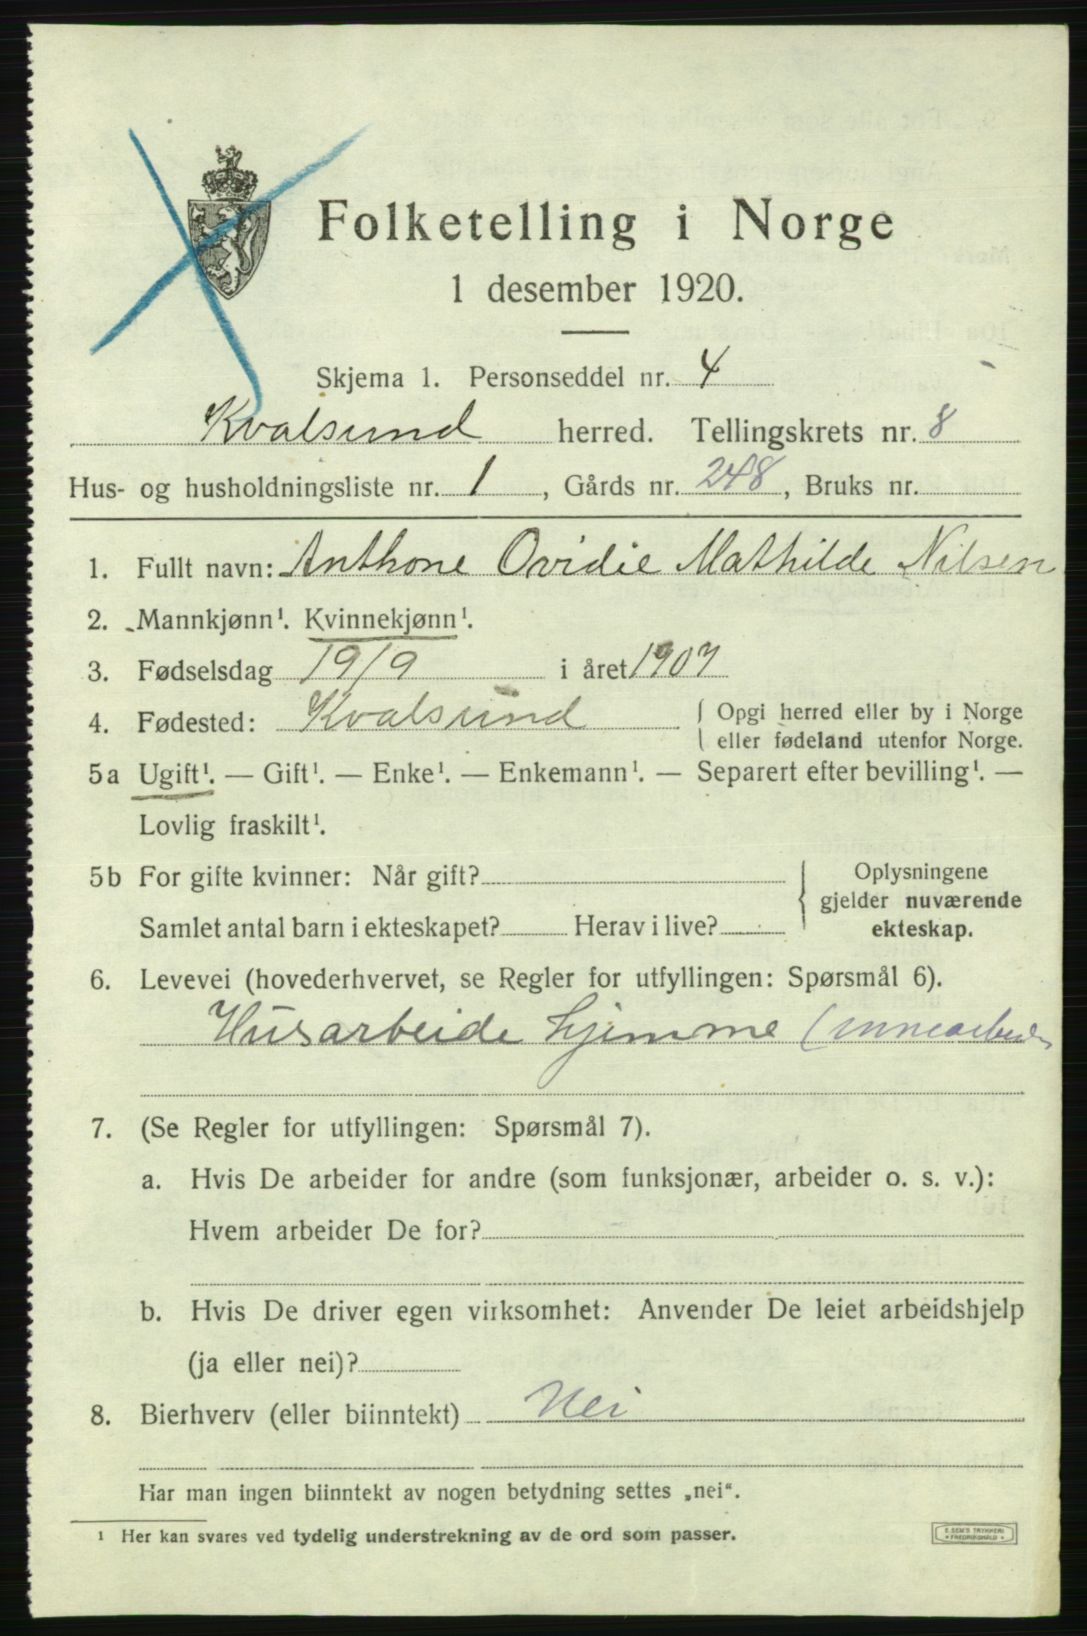 Folketelling i Norge
1 desember 1920.
Skjema 1. Personseddel nr. 4
Kvalsund herred. Tellingskrets nr. 8
Hus- og husholdningsliste nr. 1, Gårds nr. 248, Bruks nr.
1. Fullt navn: Anthone Ovidie Mathilde Nilsen
2. Mannkjønn¹. Kvinnekjønn¹.
3. Fødselsdag 19/9 i året 1907
4. Fødested: Kvalsund { Opgi herred eller by i Norge
eller fødeland utenfor Norge.
5a Ugift¹. — Gift¹. — Enke¹. — Enkemann¹. — Separert efter bevilling¹. —
Lovlig fraskilt¹.
5b For gifte kvinner: Når gift?
Samlet antal barn i ekteskapet? Herav i live?
Oplysningene
gjelder nuværende
ekteskap.
6. Levevei (hovederhvervet, se Regler for utfyllingen: Spørsmål 6).
Husarbeide hjemme (innearbeide
7. (Se Regler for utfyllingen: Spørsmål 7).
a. Hvis De arbeider for andre (som funksjonær, arbeider o. s. v.):
Hvem arbeider De for?
b. Hvis De driver egen virksomhet: Anvender De leiet arbeidshjelp
(ja eller nei)?
8. Bierhverv (eller biinntekt) Nei
Har man ingen biinntekt av nogen betydning settes „nei“.
¹ Her kan svares ved tydelig understrekning av de ord som passer.
E. SEM'S TRYKKERI
FREDRIKSHALD